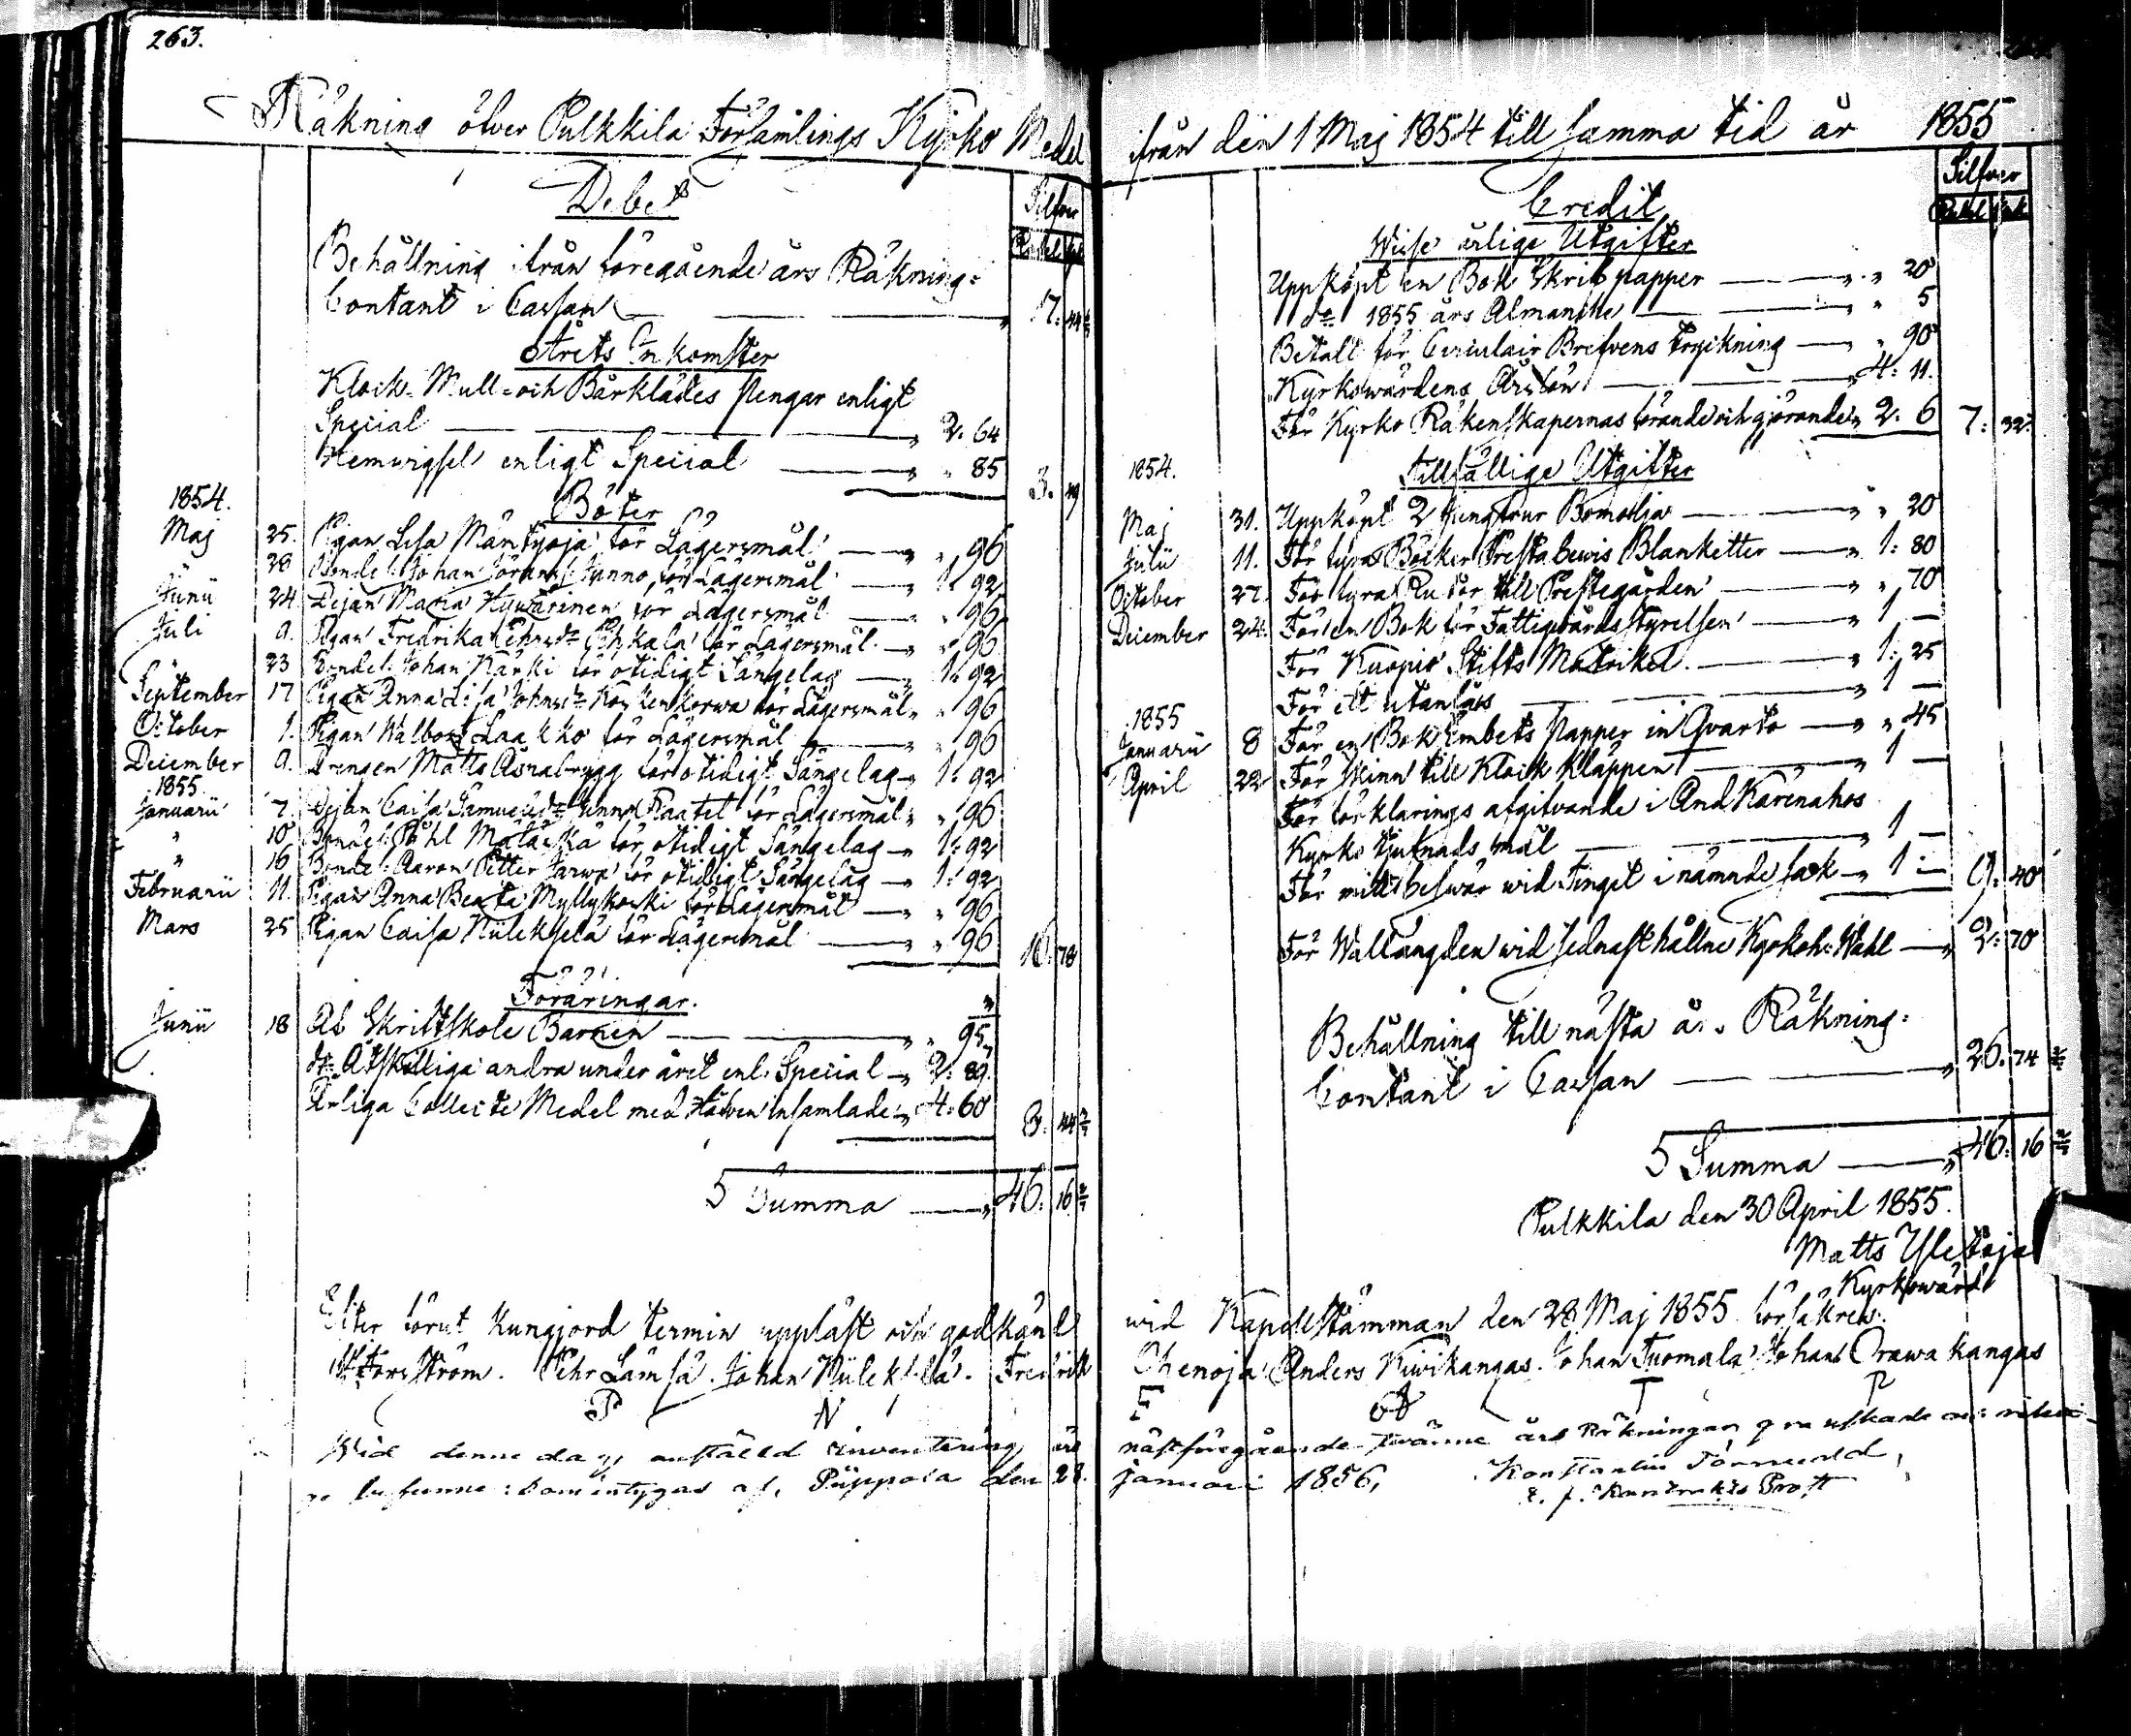 263.
Räkning öfver Pulkkila Församlings Kyrko Medel
Debet
Silfver
Rubel
Behållning ifrån föregående års Räkning:
Contant i Cassan — 17: 44
Årets Inkomster
Klock- Mull- och Bårklädes pengar enligt
Special — " 2. 64
Hemvigsel enligt Special — " " 85 3. 49
1854.
Böter
Maj 25. Pigan Lisa Mäntyoja för Lägersmål — " " 96
28 Bonde: Johan Jönno för Lägersmål — " 1: 92
Junii 24 Pigan Maria Hyvärinen för Lägersmål — " " 96
Juli 9. Pigan Fredrika Pehrsdr Pihkala för Lägersmål — " " 96
23 Bondes: Johan Karski för otidigt Sängelag — " 1: 92
September 17 Pigan Anna Lisa Johnsdr Koskenkorwa för Lägersmål " " 96
October 1. Pigan Walborg Laakko för Lägersmål — " " 96
December 9. Drengen Matts Åsnabrygg för otidigt Sängelag — " 1: 92
1855
Januarii 7. Pigan Caisa Samuelsdr Raatel för Lägersmål " " 96
" 10 Bondes: Påhl Mälaskä för otidigt Sängelag — " 1: 92
" 16 Bondes: Aaron Petter Jarwa för otidigt Sängelag — " 1: 92
Februarii 11. Pigan Anna Beata Myllykoski för Lägersmål — " " 96
Mars 25 Pigan Caisa Niileksela för Lägersmål — " " 96 16. 78
Föräringar.
Junii 18 Af Skriftskole Barnen — " " 95
do Åtskilliga andra under året enl. Special — " 2: 89
Årliga Collecte Medel med Håfven insamlade — " 4: 60 8. 44
Summa — " 46: 16
Efter förut kungjord termin uppläst och godkänd
Forsström. Pehr Lämsä. Johan Niileksela. Fredrik
P N
Wid denne dag anställd inventering äro
befunne: som intygas af, Piippola den 28.
ifrån den 1 Maj 1854 till samma tid år 1855
Credit
Silfver
Rubel
Wisse årlige Utgifter
Uppköpt en Bok Skrifpapper — " " 20
do 1855 års Almanache — " " 5
Betalt för Circulair Brefvens tryckning — " " 90
Kyrkowärdens Årslön — " 4: 11.
För Kyrko Räkenskapernas förande och görande " 2. 6 7: 32
1854.
Tillfällige Utgifter
Maj 31. Uppköpt 2 — " " 20
Julii 11. För fyra Böcker Prestabewis Blanketter — " 1: 80
October 27. För fyra Rutor till Prestegården — " " 70
December 24. För en Bok för Fattigvårdsstyrelsen — " 1 —
För Kuopio Stifts Matrikel. — " 1: 25
För ett utanlås — " 1 —
1855
Januarii 8 För en Bok Embets papper in Qvarto — " " 45
April 22 För skinn till Klock Kläppen — " 1 —
För förklarings afgifvande i And Karenahos
Kyrko tjufnads mål — " 1 —
För mitt beswär wid Tinget i nämnde sak — " 1 — 9: 40
För Wallängden wid sednast hållne Kyrkoh: Wahl — " 2: 70
Behållning till nästa års Räkning:
Contant i Cassan — " 26: 74
Summa — " 46: 16
Pulkkila den 30 April 1855.
Matts Yletoja
Kyrkowärd
wid Kapellstämman den 28 Maj 1855 försäkras:
Ohenoja Anders Kiwikangas. Johan Tuomala Johan Orawakangas
F T
nästföregående twänne års Räkningar granskade och riktiga
Januari 1856,
Konstantin Törnudd,
Prost